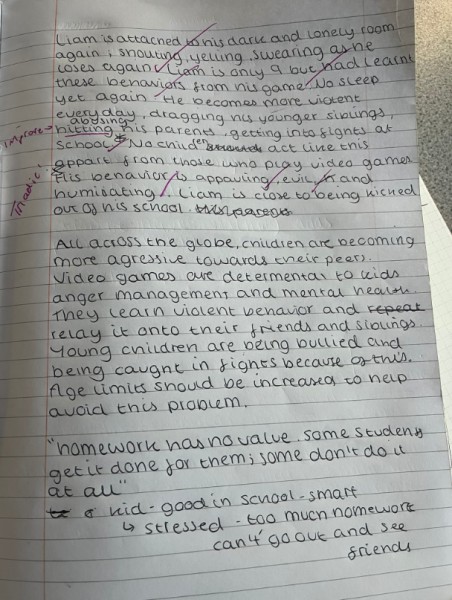 Liam is attatched to his dark and lonely room
again; shouting, yelling, swearing as he
loses again. Liam is only 9 but had learnt
these behaviors from his game. No sleep
yet again. He becomes more violent
everyday, dragging his younger siblings,
abusing
improve → hitting his parents, getting into fights at
school. No children act like this
Triadic appart from those who play video games
His behavior is appauling, evil and
humiliating. Liam is close to being kicked
out of his school. this parents
All across the globe, children are becoming
more agressive towards their peers.
Video games are determental to kids
anger management and mental health.
They learn violent behavior and repeat
relay it onto their friends and siblings.
Young children are being bullied and
being caught in fights because of this.
Age limits should be increased to help
avoid this problem.
"homework has no value. Some students
get it done for them; some don't do it
at all"
kid - good in school - smart
↳ stressed - too much homework
can't go out and see
friends